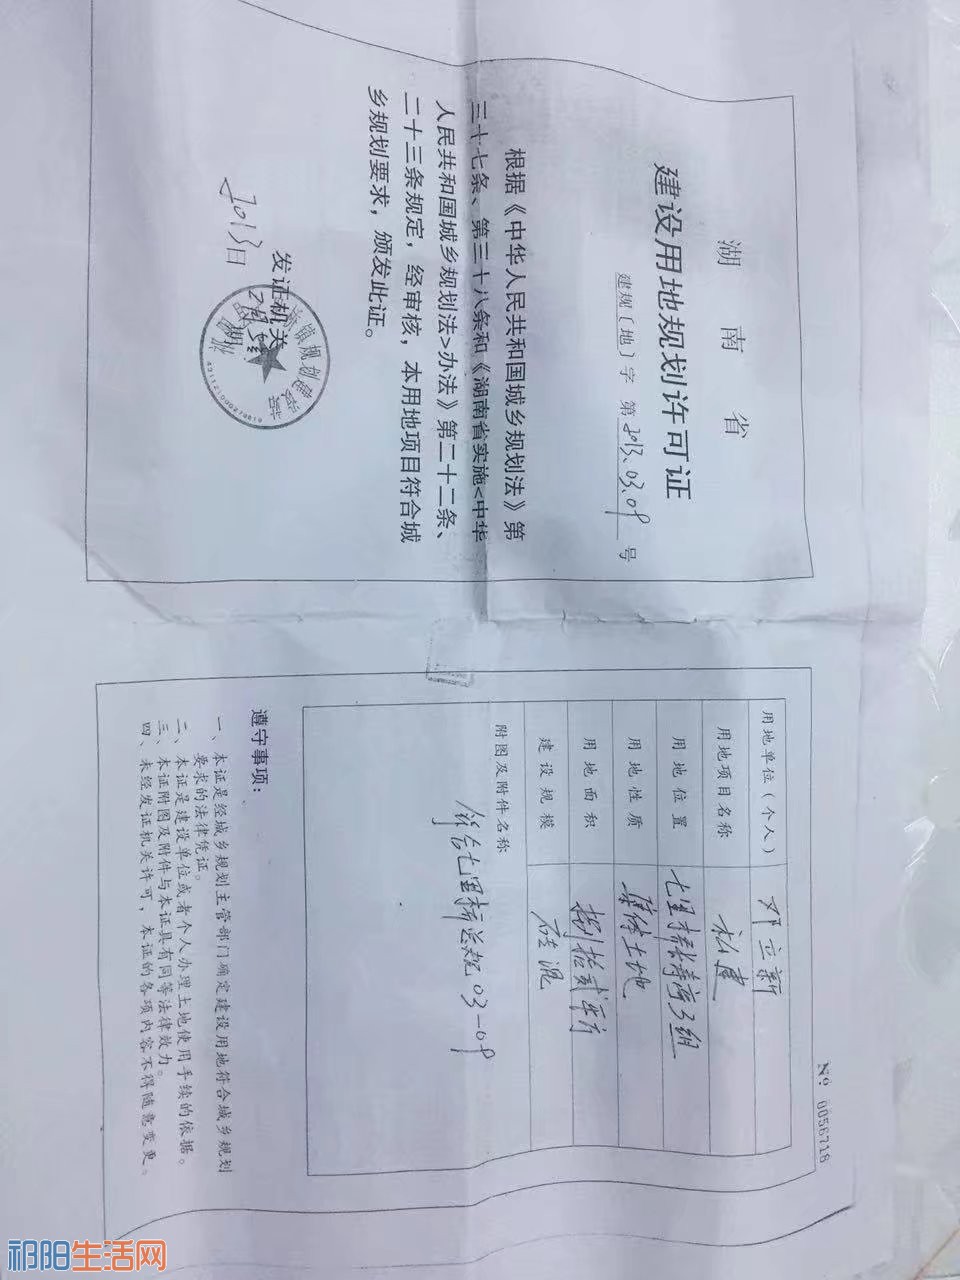 湖南省
建设用地规划许可证
建规〔地〕字 第 2013.03.09 号
根据《中华人民共和国城乡规划法》第
三十七条、第三十八条和《湖南省实施<中华
人民共和国城乡规划法>办法》第二十二条、
二十三条规定，经审核，本用地项目符合城
乡规划要求，颁发此证。
发证机关
日
№ 0056718
用地单位(个人) 邓立新
用地项目名称 私建
用地位置 七里桥长寿亭3组
用地性质 集体土地
用地面积 捌拾贰平方
建设规模 砖混
附图及附件名称
符合七里桥总规03-09
遵守事项：
一、本证是经城乡规划主管部门确定建设用地符合城乡规划
要求的法律凭证。
二、本证是建设单位或者个人办理土地使用手续的依据。
三、本证附图及附件与本证具有同等法律效力。
四、未经发证机关许可，本证的各项内容不得随意变更。
祁阳生活网